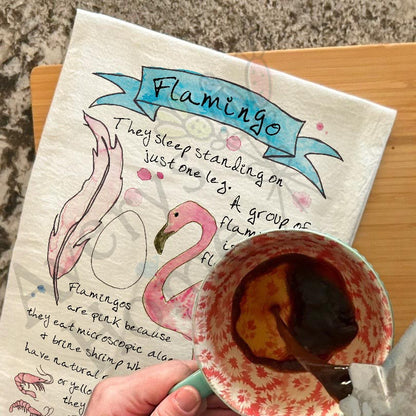 Flamingo
They sleep standing on
just one leg.
A group of
Flamingos
are pink because
they eat microscopic algae
+ brine shrimp
have natural
or
they